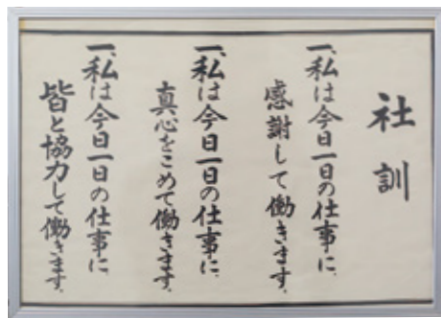 社訓
一、私は今日一日の仕事に
感謝して働きます。
一、私は今日一日の仕事に
真心をこめて働きます。
一、私は今日一日の仕事に
皆と協力して働きます。